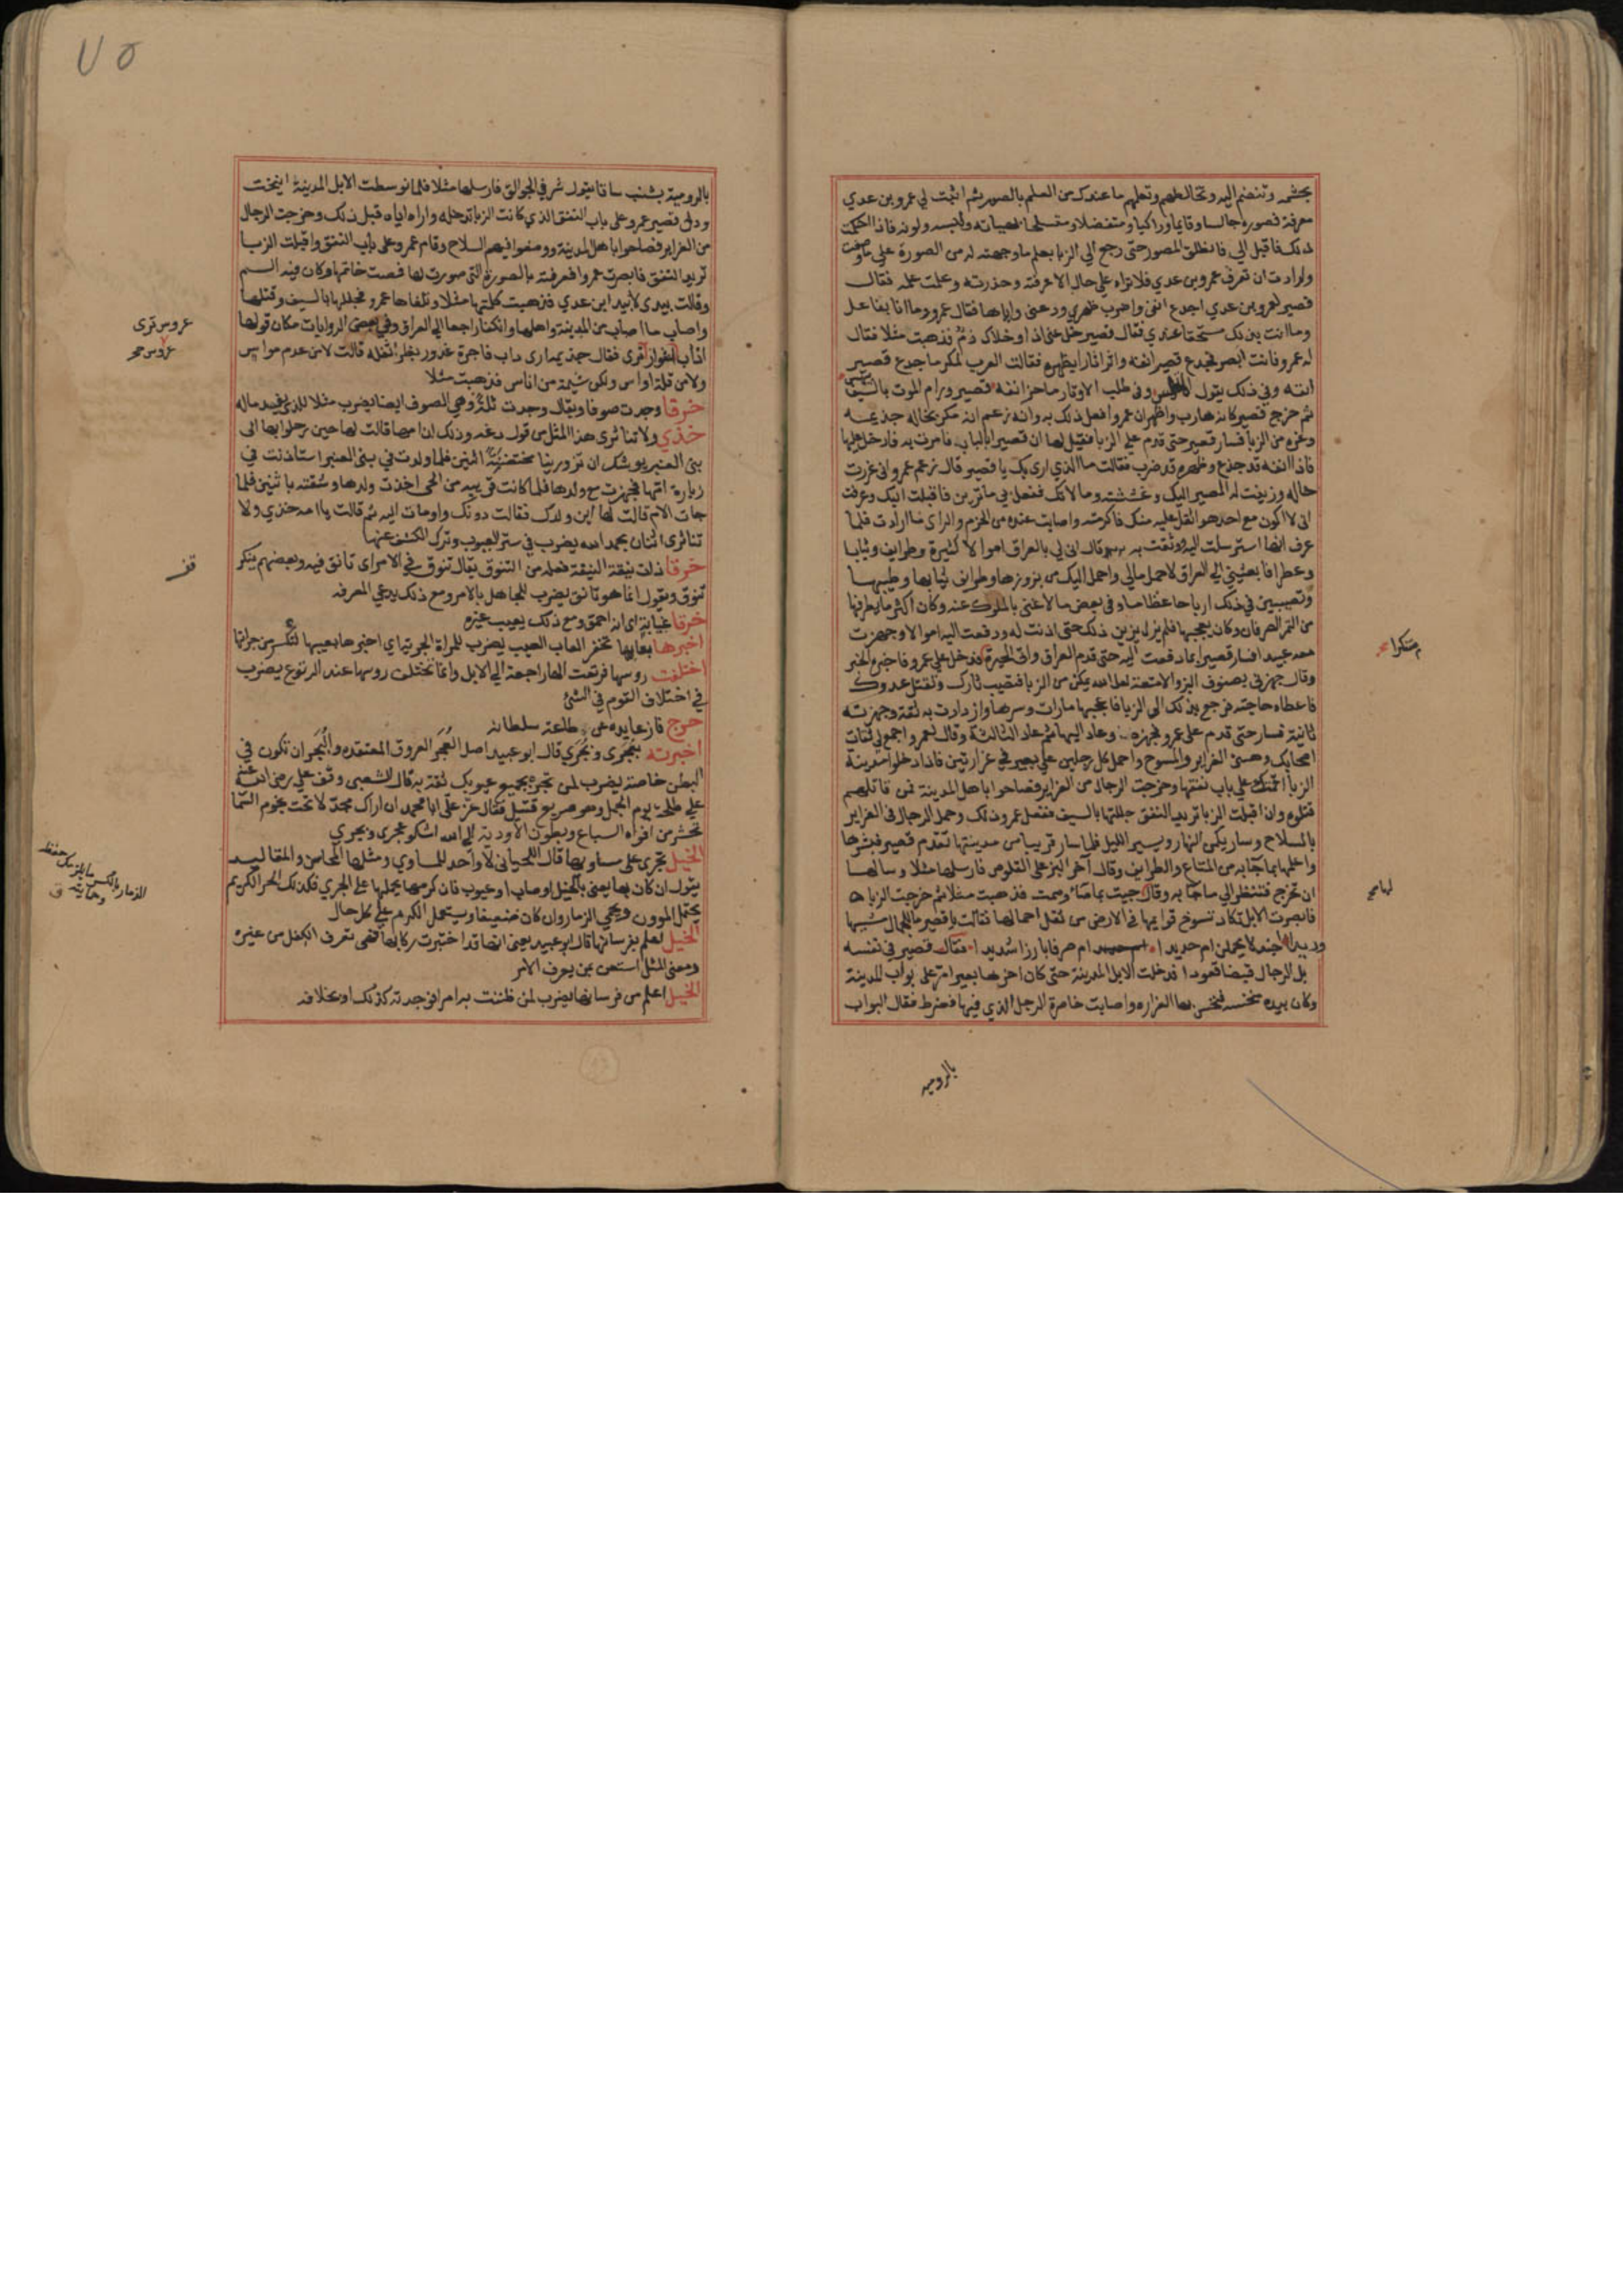 بحشمه وتنضم اليه وتخالطهم وتعلمهم ما عندك من العلم بالصور ثم اثبت لي عمرو بن عدي
معرفة فصوره جالسا وقايما وراكبا ومتفضلا ومتسلحا بهيأته ولبسه ولونه فاذا احكمت
ذلك فاقبل الي فانطلق المصور حتى رجع الي الزبا بعلم ما وجهته له من الصورة على ما وصفت
وارادت ان تعرف عمرو بن عدي فلا تراه علي حال الا عرفته وحذرته وعلمت علمه فقال
قصير لعمرو بن عدي اجدع انفي واضرب ظهري ودعني واياها فقال عمرو وما انا بفاعل
وما انت بذلك مستحقا عندي فقال قصير خل عني اذا وخلاك ذم فذهبت مثلا فقال
له عمرو فانت ابصر فجدع قصير انفه واثر اثارا بظهره فقالت العرب لمكر ما جدع قصير
انفه وفي ذلك يقول المتلمس وفي طلب الاوتار ما حز انفه قصير ورام الموت بالسيف بيهس
ثم خرج قصير كانه هارب واظهر ان عمرا فعل ذلك به وانه زعم انه مكر بخاله جذيمه
وغره من الزبا فسار قصير حتى قدم علي الزبا فقيل لها ان قصيرا بالباب فامرت به فادخل عليها
فاذا انفه قد جدع وظهره قد ضرب فقالت ما الذي اري بك يا قصير قال زعم عمرو اني غررت
خاله وزينت له المصير اليك وغششته ومالاتك ففعل بي ما ترين فاقبلت اليك وعرفت
اني لا اكون مع احد هو اثقل عليه منك فاكرمته واصابت عنده من الحزم والراي ما ارادت فلما
عرف انها استرسلت اليه ووثقت به قال ان لي بالعراق اموالا كثيرة وطرايف وثيابا
وعطرا فابعثيني الي العراق لاحمل مالي واحمل اليك من بزوزها وطرايف ثيابها وطيبها
وتصيبين في ذلك ارباحا عظاما وفي بعض ما لا غنى بالملوك عنه وكان اكثر ما يطرفها
من التمر الصرفان وكان يعجبها فلم يزل يزين ذلك حتى اذنت له ودفعت اليه اموالا وجهزت
معه عبيدا فسار قصير بما دفعت اليه حتى قدم العراق واتى الحيرة فدخل علي عمرو فاخبره الخبر
وقال جهزني بصنوف البز والامتعة لعل الله يمكن من الزبا فتصيب ثارك وتقتل عدوك
فاعطاه حاجته فرجع بذلك الي الزبا فاعجبها ما رات وسرها وازدادت به ثقة وجهزته
ثانية فسار حتى قدم علي عمرو فجهزه وعاد اليها ثم عاد الثالثة وقال لعمرو اجمع لي ثقات
اصحابك وهيئ الغراير والمسوح واحمل كل رجلين علي بعير في غرارتين فاذا دخلوا مدينة
الزبا اقمتك علي باب نفقها وخرجت الرجال من الغراير فصاحوا باهل المدينة فمن قاتلهم
قتلوه وان اقبلت الزبا تريد النفق جللتها بالسيف ففعل عمرو ذلك وحمل الرجال في الغراير
بالسلاح وسار يكمن النهار ويسير الليل فلما سار قريبا من مدينتها تقدم قصير فبشرها
واعلمها بما جا به من المتاع والطرايف وقال آخر البز علي القلوص فارسلها مثلا وسالها
ان تخرج فتنظر الي ما جا به وقال جيت بما صاء وصمت فذهبت مثلا ثم خرجت الزبا
فابصرت الابل تكاد تسوخ قوايمها في الارض من ثقل احمالها فقالت يا قصير ما للجمال مشيها
وديدا اجندلا يحملن ام حديدا ام صرفانا بارزا شديدا فقال قصير في نفسه
بل الرجال قبضا قعودا فدخلت الابل المدينة حتى كان اخرها بعيرا مر علي بواب المدينة
وكان بيده منخسه فنخس بها الغراره واصابت خاصرة الرجل الذي فيها فضرط فقال البواب
بالروميه
متنكرا
لها صح
٧٥
بالرومية بشنب ساقا يقول شر في الجوالق فارسلها مثلا فلما توسطت الابل المدينة انيخت
ودل قصير عمرو على باب النفق الذي كانت الزبا تدخله واراه اياه قبل ذلك وخرجت الرجال
من الغراير فصاحوا باهل المدينة ووضعوا فيهم السلاح وقام عمرو علي باب النفق واقبلت الزبا
تريد النفق فابصرت عمرا فعرفته بالصورة التي صورت لها فمصت خاتمها وكان فيه السم
وقالت بيدي لا بيد ابن عدي فذهبت كلمتها مثلا وتلقاها عمرو فجللها بالسيف وقتلها
واصاب ما اصاب من المدينة واهلها وانكفا راجعا الي العراق وفي بعض الروايات مكان قولها
اداب العوار ترى فقال جذيمة ارى داب فاجرة غدور بظرا تفلة قالت لا من عدم مواس
ولا من قلة اواس ولكن شيمة من اناس فذهبت مثلا
خرقا وجدت صوفا ويقال وجدت ثلة وهي الصوف ايضا يضرب مثلا للذي يفسد ماله
خذي ولا تناثري هذا المثل من قول دغه وذلك ان امها قالت لها حين رحلوا بها الى
بني العنبر يوشك ان تزورينا محتضنة اثنين فلما ولدت في بني العنبر استاذنت في
زيارة امها فجهزت مع ولدها فلما كانت قريبه من الحي اخذت ولدها وشقته باثنين فلما
جات الام قالت لها اين ولدك فقالت دونك واومات اليه ثم قالت يا امه خذي ولا
تناثري اثنان بحمد الله يضرب في ستر العيوب وترك الكشف عنها
خرقا ذات نيقة النيقة فعلة من التنوق يقال تنوق في الامر اي تانق فيه وبعضهم ينكر
تنوق ويقول انما هو تانق يضرب للجاهل بالامر ومع ذلك يدعي المعرفه
خرقا عيابة اي انه احمق ومع ذلك يعيب غيره
اخبرها بعابها تخفر العاب العيب يضرب للمراة الجرية اي اخبرها بعيبها لتكسر من جراتها
اختلفت روسها فرتعت الها راجعة الي الابل وانما تختلف روسها عند الرتوع يضرب
في اختلاف القوم في الشئ
خرج نازعا يده طاعة سلطانه
اخبرته بعجري وبجري قال ابو عبيد اصل العجر العروق المتعقده والبجر ان تكون في
البطن خاصة يضرب لمن تخبره بجميع عيوبك ثقة به قال الشعبي وقف علي رضي الله عنه
علي طلحة يوم الجمل وهو صريع قتيل فقال عز علي ابا محمد ان اراك مجدلا تحت نجوم السما
تحشر من افواه السباع وبطون الاودية الي الله اشكو عجري وبجري
الخيل تجري على مساويها قال اللحياني لا واحد للمساوي ومثلها المحاسن والمقاليد
يقول ان كان بها يعني بالخيل اوصاب او عيوب فان كرمها يحملها علي الجري فكذلك الحر الكريم
يحتمل المؤون ويحمي الذمار وان كان ضعيفا ويستعمل الكرم علي كل حال
الخيل اعلم بفرسانها قال ابو عبيد يعني انها قد اختبرت ركابها فهي تعرف الكفل من غيره
ومعنى المثل استعن بمن يعرف الامر
الخيل اعلم من فرسانها يضرب لمن ظننت به امرا فوجدته كذلك او بخلافه
عروس ترى
عروس صح
قف
الذمار بالكسر ما يلزمك حفظه
وحمايته ق